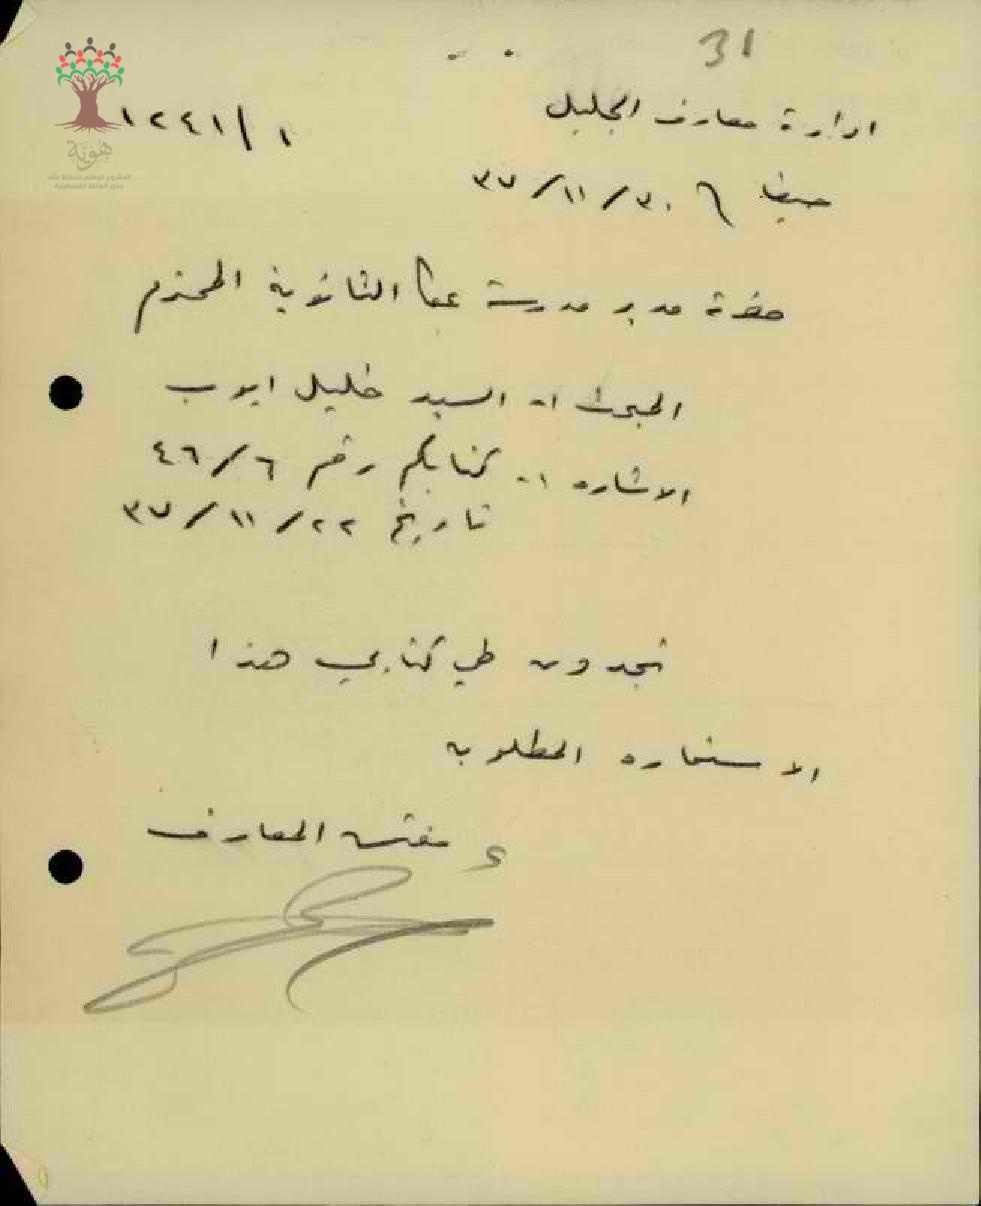 31
ادارة معارف الجليل
١٢٤١/١
حيفا ٣٠/١١/٣٧
حضرة مدير مدرسة عكا الثانوية المحترم
المبحث :- السيد خليل ايوب
الاشاره :- كتابكم رقم ٤٦/٦
تاريخ ٢٢/١١/٣٧
تجدون طي كتابي هذا
الاستماره المطلوبه
ع مفتش المعارف
هوية
المشروع الوطني للحفاظ على
جذور العائلة الفلسطينية